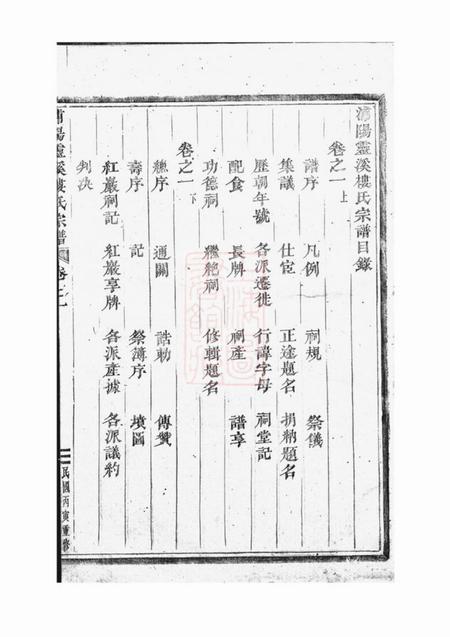 浦陽靈溪樓氏宗譜目錄
卷之一上
譜序 凡例 祠規 祭儀
集議 仕宦 正途題名 捐納題名
歷朝年號 各派遷徙 行諱字母 祠堂記
配食 長牌 祠產 譜享
功德祠 繼絕祠 修輯題名
卷之一下
總序 通關 誥勅 傳贊
壽序 記 祭簿序 墳圖
紅巖祠記 紅巖享牌 各派產據 各派議約
判決
浦陽靈溪樓氏宗譜 卷之一
民國丙寅重修